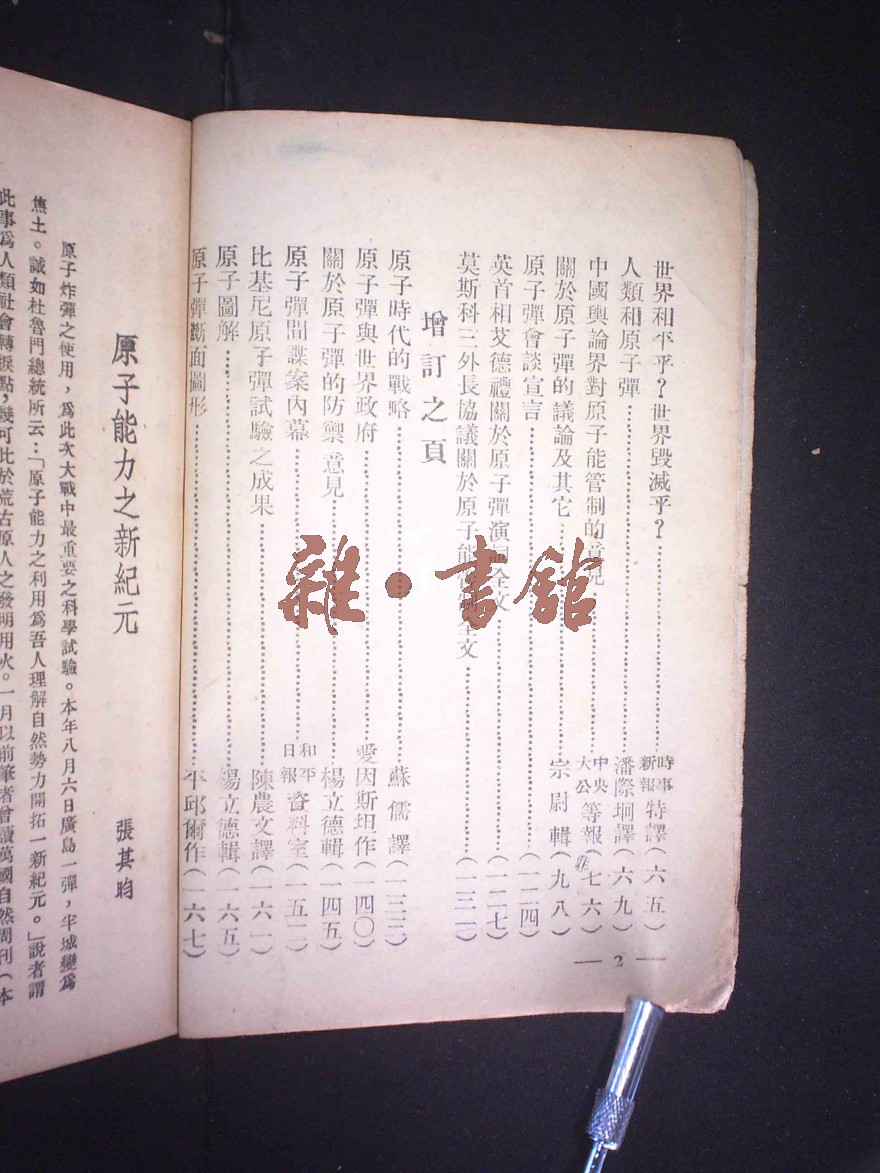 世界和平乎？世界毀滅乎？……時事新報特譯（六五）
人類和原子彈……潘際坰譯（六九）
中國輿論界對原子能管制的意見……中央大公等報（七六）
關於原子彈的議論及其它……宗尉輯（九八）
原子彈會談宣言……（一二四）
英首相艾德禮關於原子彈演詞全文……（一二七）
莫斯科三外長協議關於原子能 全文……（一三二）
增訂之頁
原子時代的戰略……蘇儒譯（一三三）
原子彈與世界政府……愛因斯坦作（一四〇）
關於原子彈的防禦意見……楊立德輯（一四五）
原子彈間諜案內幕……和平日報資料室（一五二）
比基尼原子彈試驗之成果……陳農文譯（一六一）
原子圖解……楊立德輯（一六五）
原子彈斷面圖形……平邱爾作（一六七）
— 2 —
原子能力之新紀元
張其昀
原子炸彈之使用，為此次大戰中最重要之科學試驗。本年八月六日廣島一彈，半城變為
焦土。誠如杜魯門總統所云：「原子能力之利用為吾人理解自然勢力開拓一新紀元。」說者謂
此事為人類社會轉捩點，幾可比於荒古原人之發明用火。一月以前筆者曾讀萬國自然周刊（本
雜·書館